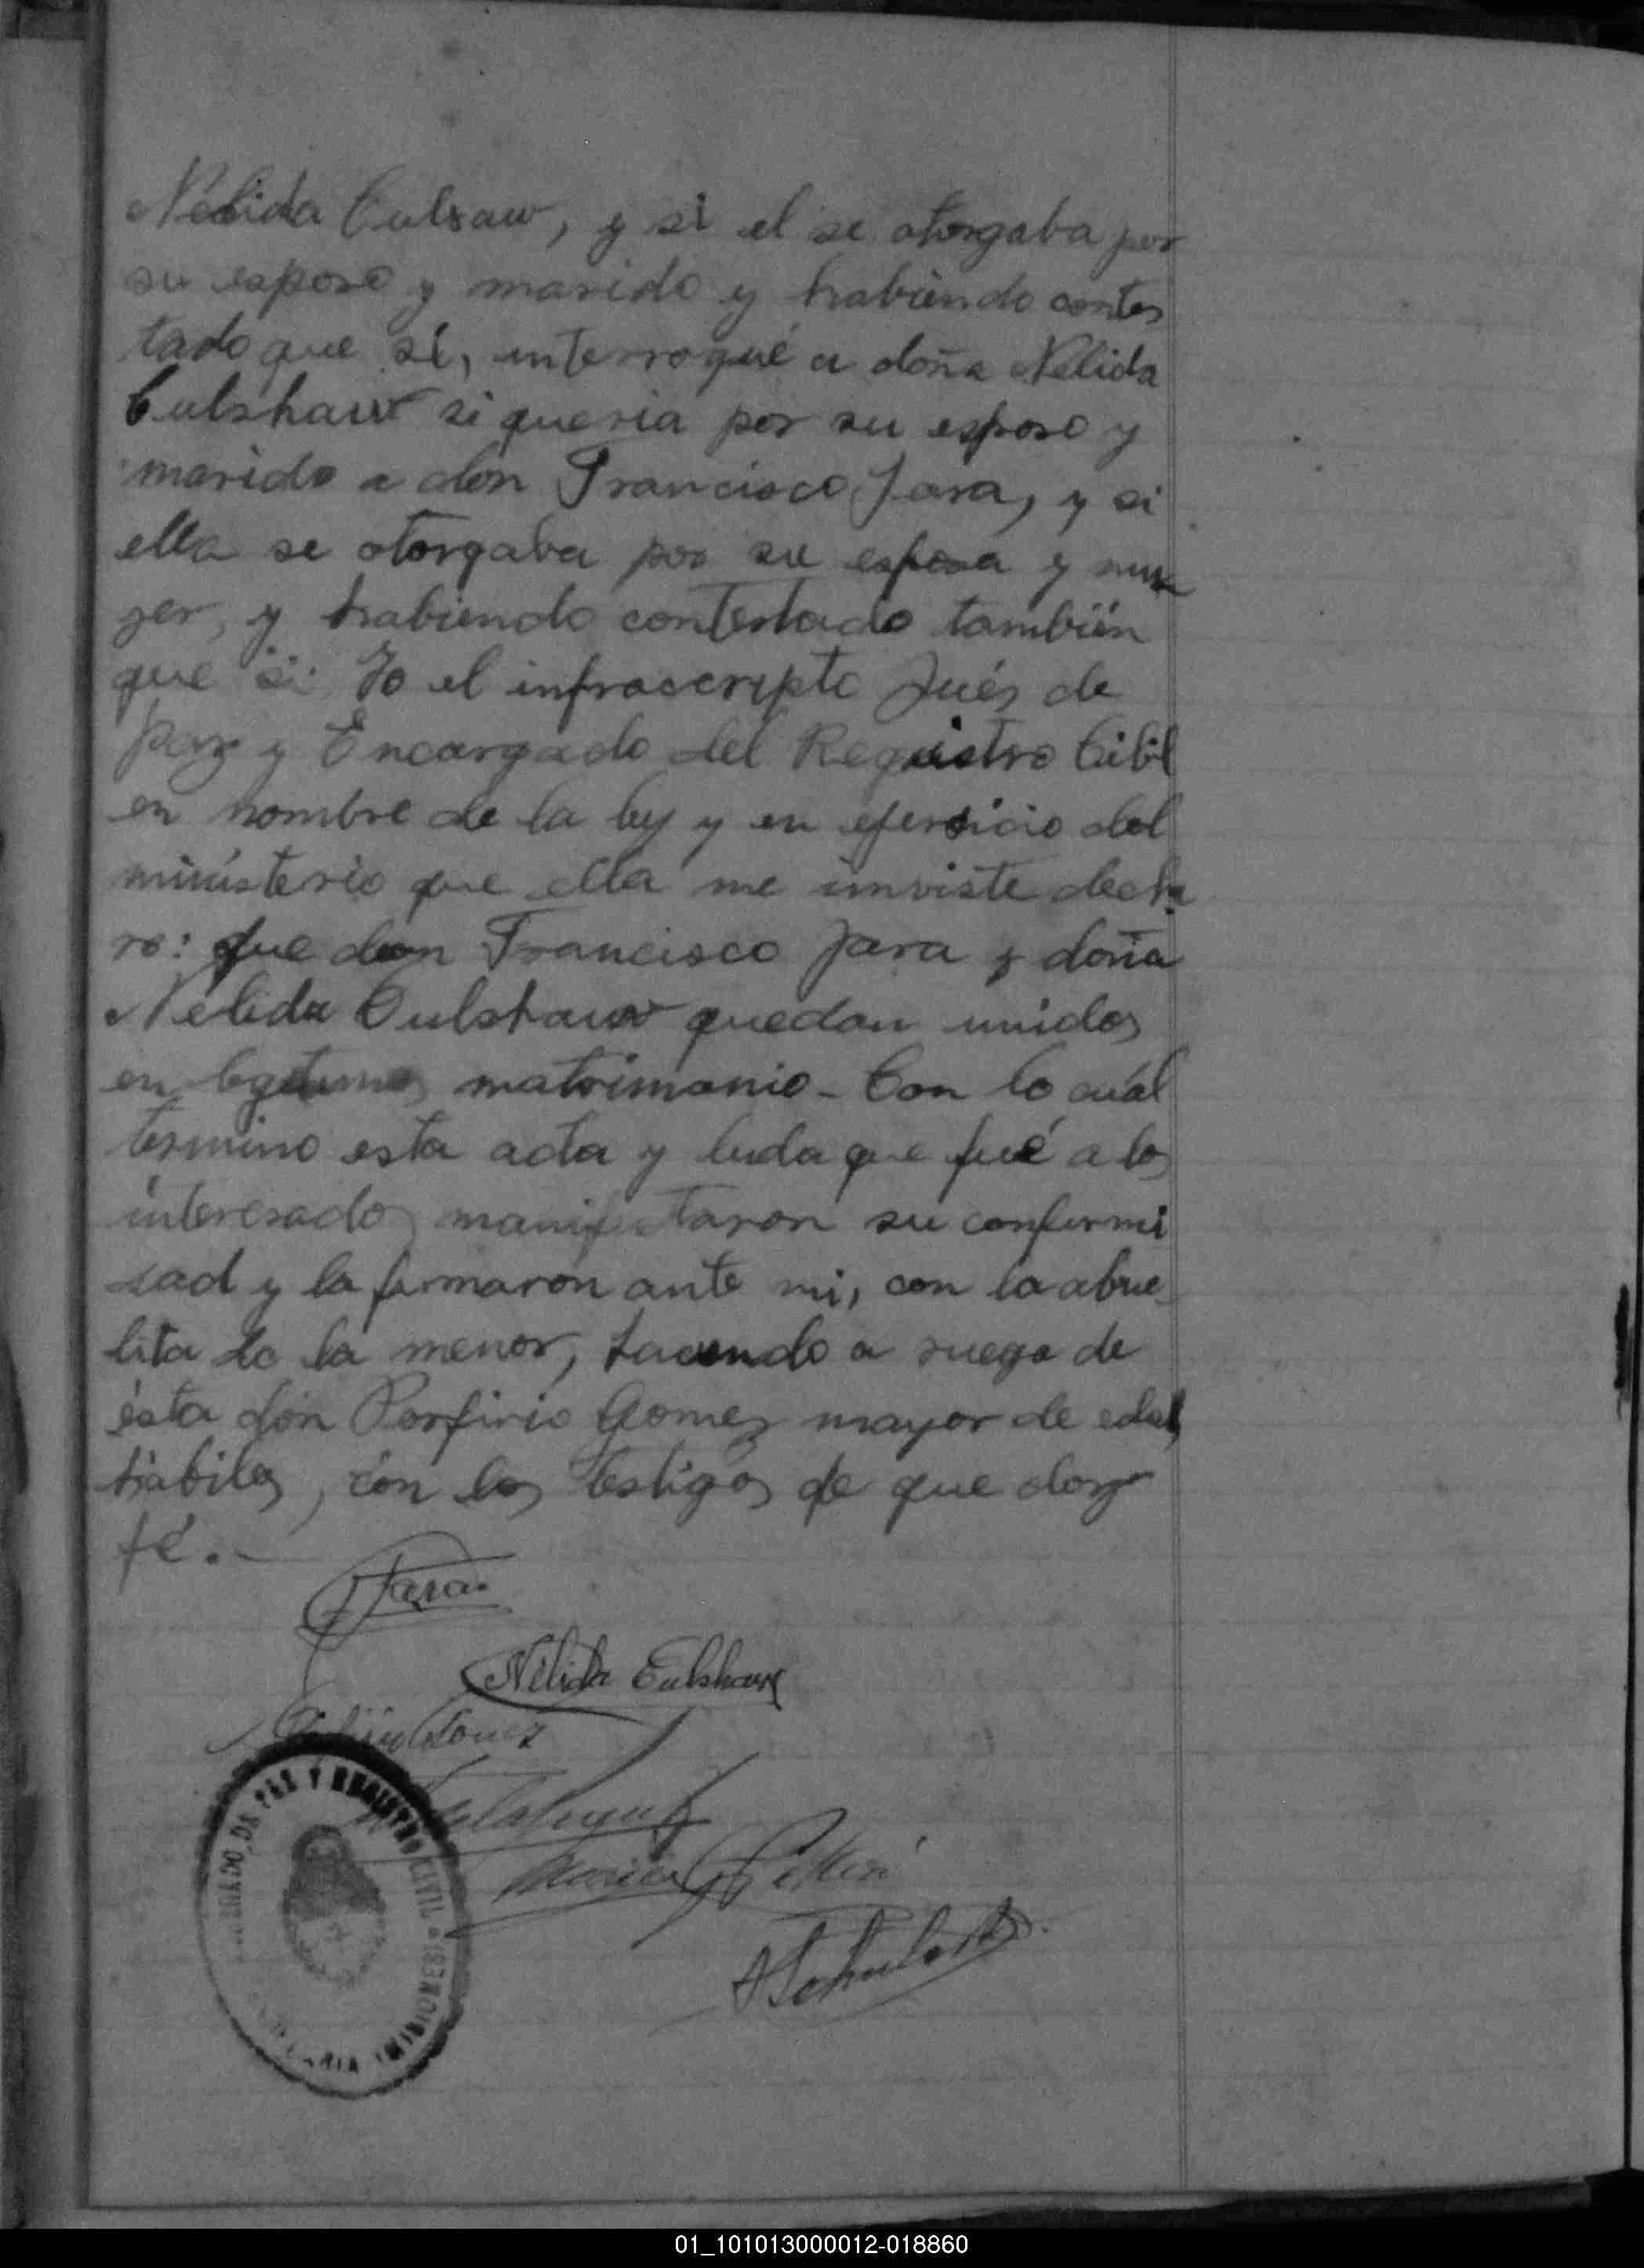 Nelida Culsaw, y si el se otorgaba por
su esposo y marido y habiendo contes
tado que sí, interrogué a doña Nelida
Culshaw si queria por su esposo y
marido a don Francisco Jara, y si
ella se otorgaba por su esposa y mu
jer, y habiendo contestado también
que si: Yo el infrascripto Jués de
Paz y Encargado del Registro Cibil
en nombre de la ley y en ejersicio del
ministerio que ella me inviste decla
ro: que don Francisco Jara y doña
Nelida Culshaw quedan unidos
en legitimo matrimonio - Con lo cuál
termino esta acta y leida que fué a los
interesados manifestaron su conformi
dad y la firmaron ante mi, con la abue
lita de la menor, haciendo a ruego de
ésta don Porfirio Gomez mayor de edad,
hábiles, con los testigos de que doy
fé.-
Jara
Nélida Culshaw
Gomez
DE PAZ Y REGISTRO CIVIL
01_101013000012-018860